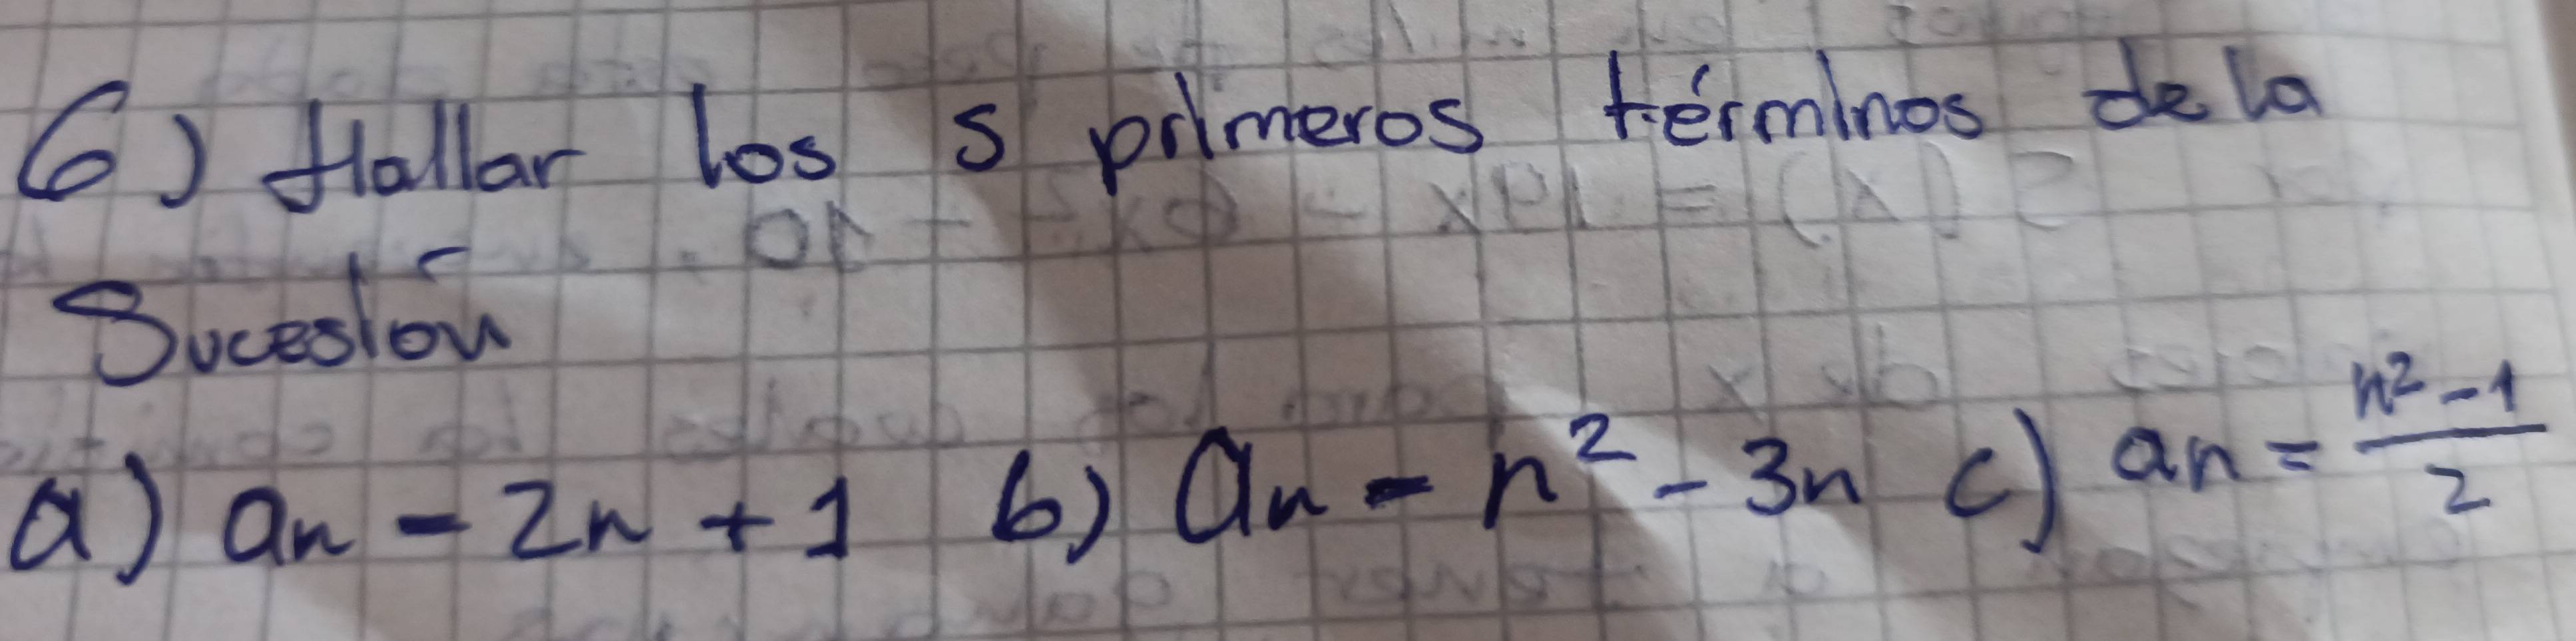 6) Hallar los 5 primeros términos de la
Sucesión
a) an = 2n + 1 b) an = n² - 3n c) an = n²-1/2